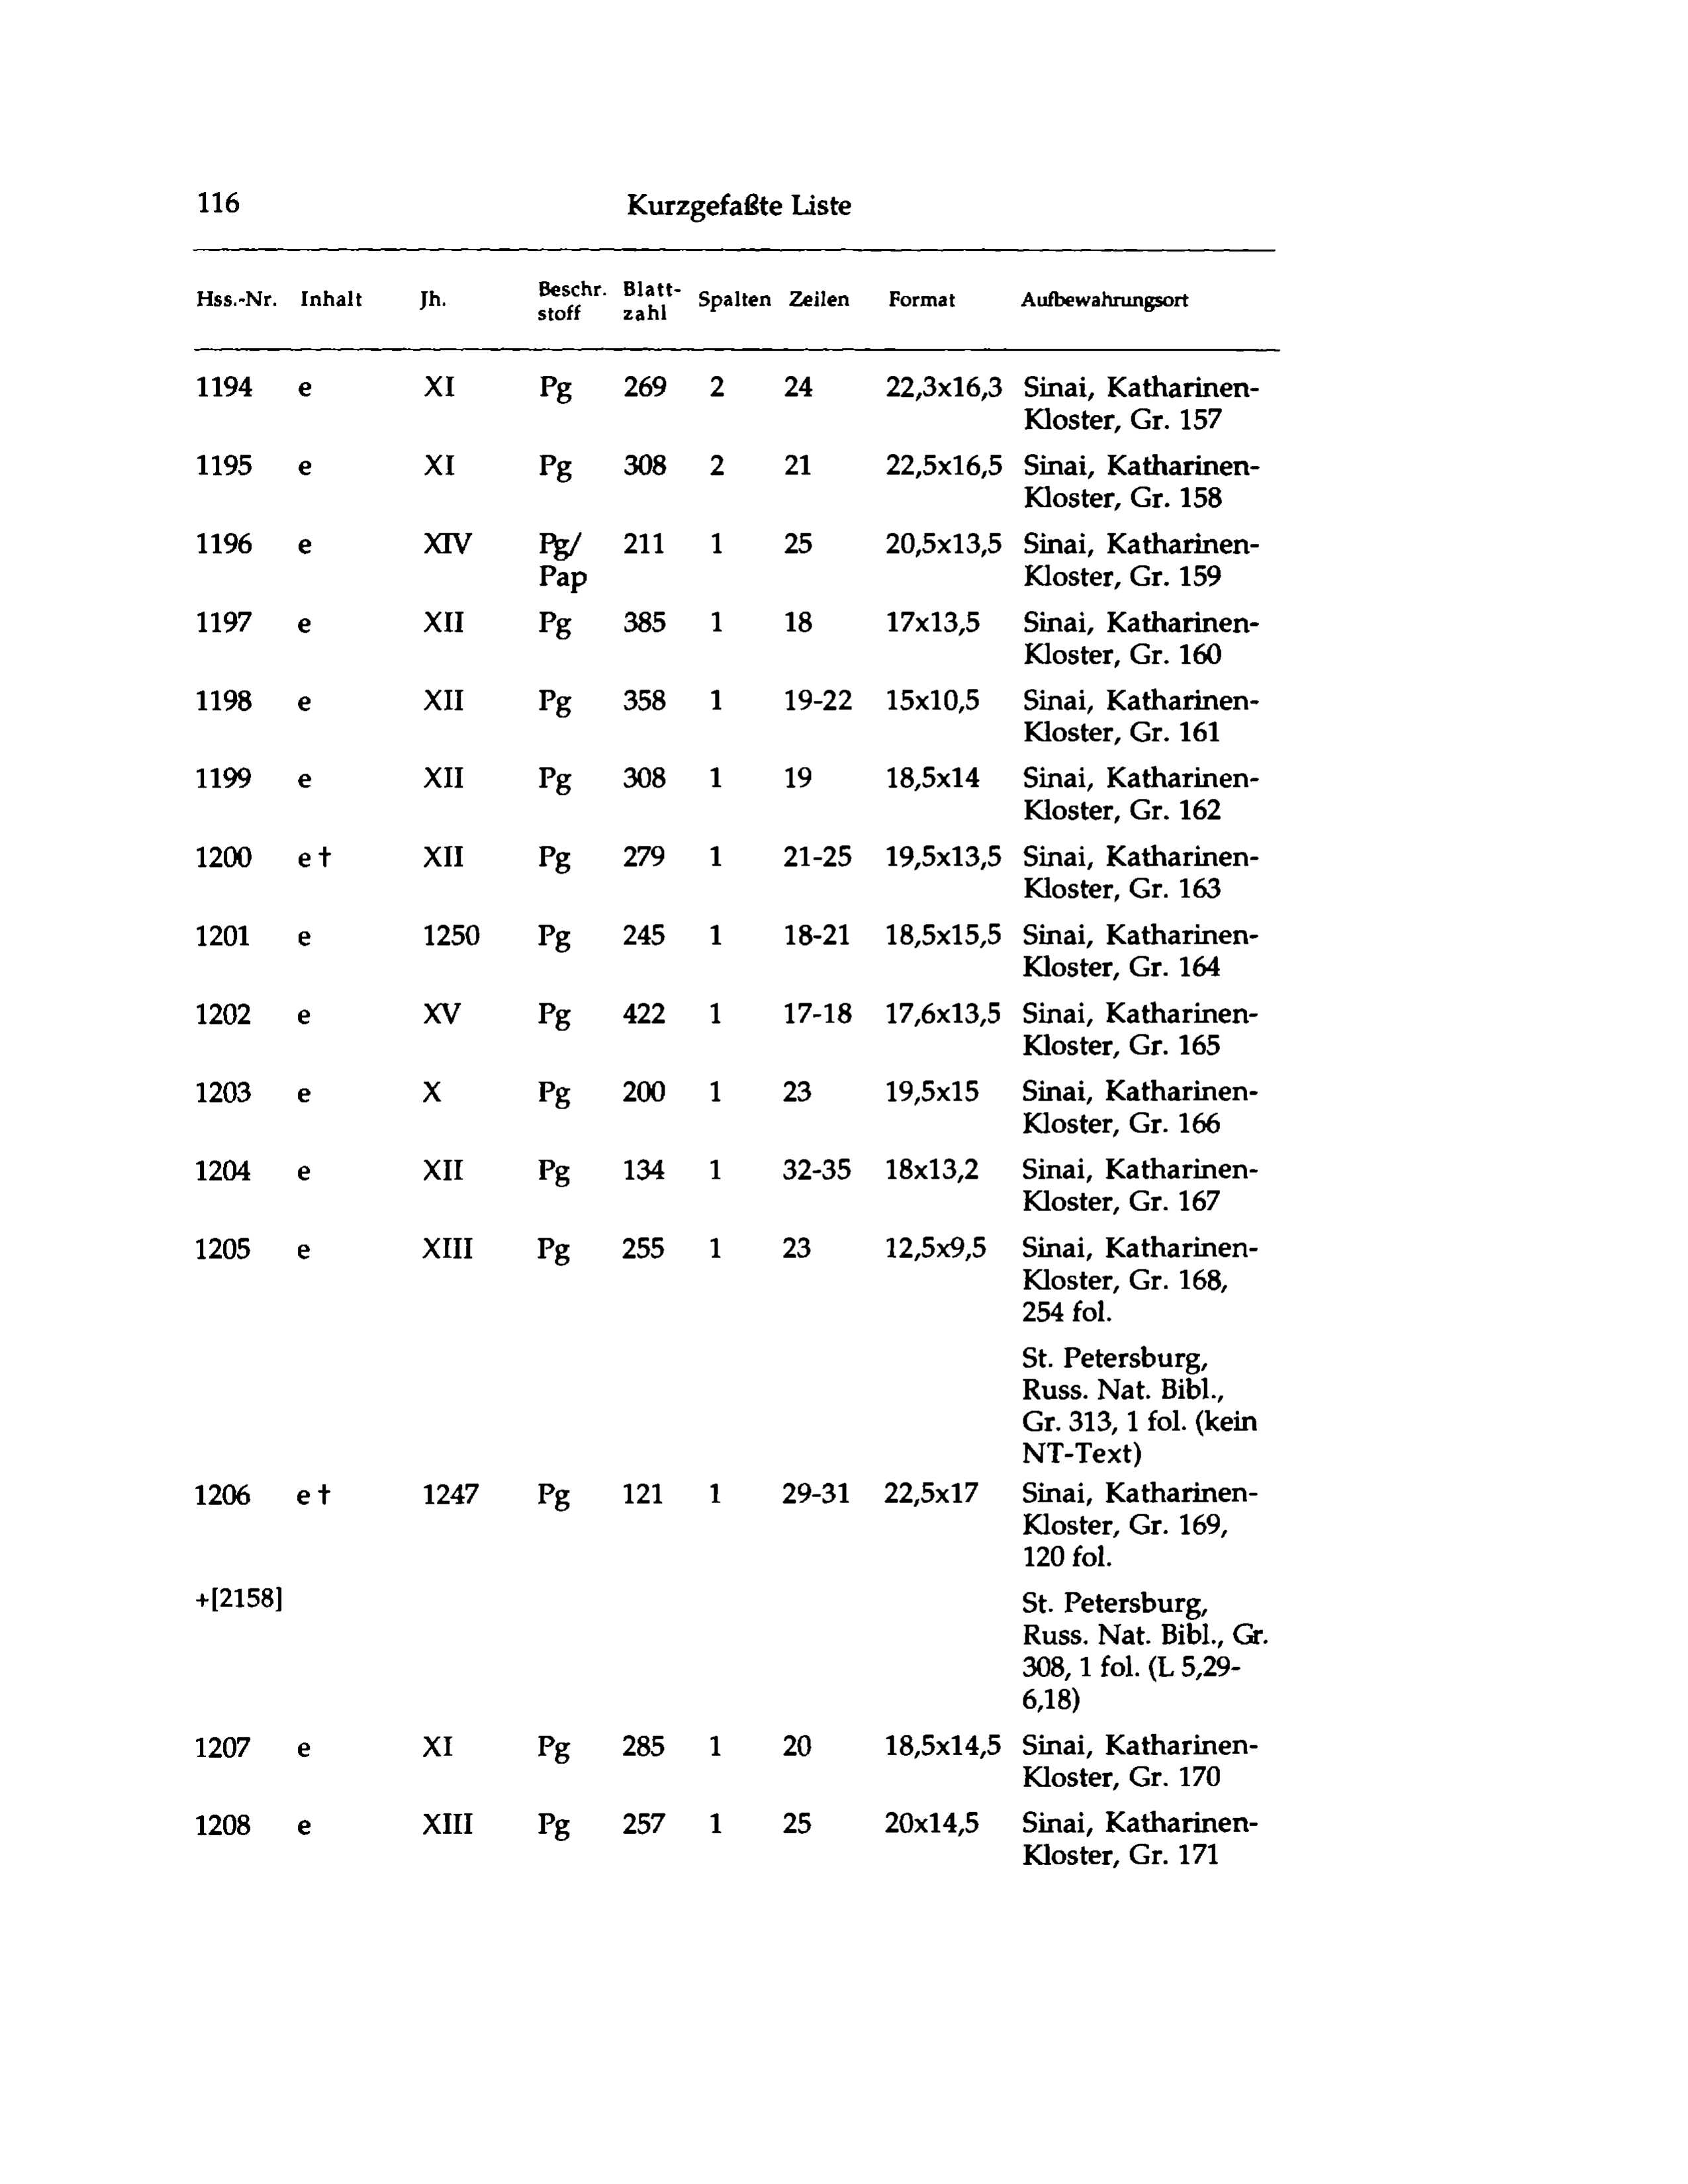 116 Kurzgefaßte Liste
Hss.-Nr. Inhalt Jh. Beschr. stoff Blatt- zahl Spalten Zeilen Format Aufbewahrungsort
1194 e XI Pg 269 2 24 22,3x16,3 Sinai, Katharinen-
Kloster, Gr. 157
1195 e XI Pg 308 2 21 22,5x16,5 Sinai, Katharinen-
Kloster, Gr. 158
1196 e XIV Pg/ 211 1 25 20,5x13,5 Sinai, Katharinen-
Pap Kloster, Gr. 159
1197 e XII Pg 385 1 18 17x13,5 Sinai, Katharinen-
Kloster, Gr. 160
1198 e XII Pg 358 1 19-22 15x10,5 Sinai, Katharinen-
Kloster, Gr. 161
1199 e XII Pg 308 1 19 18,5x14 Sinai, Katharinen-
Kloster, Gr. 162
1200 e † XII Pg 279 1 21-25 19,5x13,5 Sinai, Katharinen-
Kloster, Gr. 163
1201 e 1250 Pg 245 1 18-21 18,5x15,5 Sinai, Katharinen-
Kloster, Gr. 164
1202 e XV Pg 422 1 17-18 17,6x13,5 Sinai, Katharinen-
Kloster, Gr. 165
1203 e X Pg 200 1 23 19,5x15 Sinai, Katharinen-
Kloster, Gr. 166
1204 e XII Pg 134 1 32-35 18x13,2 Sinai, Katharinen-
Kloster, Gr. 167
1205 e XIII Pg 255 1 23 12,5x9,5 Sinai, Katharinen-
Kloster, Gr. 168,
254 fol.
St. Petersburg,
Russ. Nat. Bibl.,
Gr. 313, 1 fol. (kein
NT-Text)
1206 e † 1247 Pg 121 1 29-31 22,5x17 Sinai, Katharinen-
Kloster, Gr. 169,
120 fol.
+[2158] St. Petersburg,
Russ. Nat. Bibl., Gr.
308, 1 fol. (L 5,29-
6,18)
1207 e XI Pg 285 1 20 18,5x14,5 Sinai, Katharinen-
Kloster, Gr. 170
1208 e XIII Pg 257 1 25 20x14,5 Sinai, Katharinen-
Kloster, Gr. 171